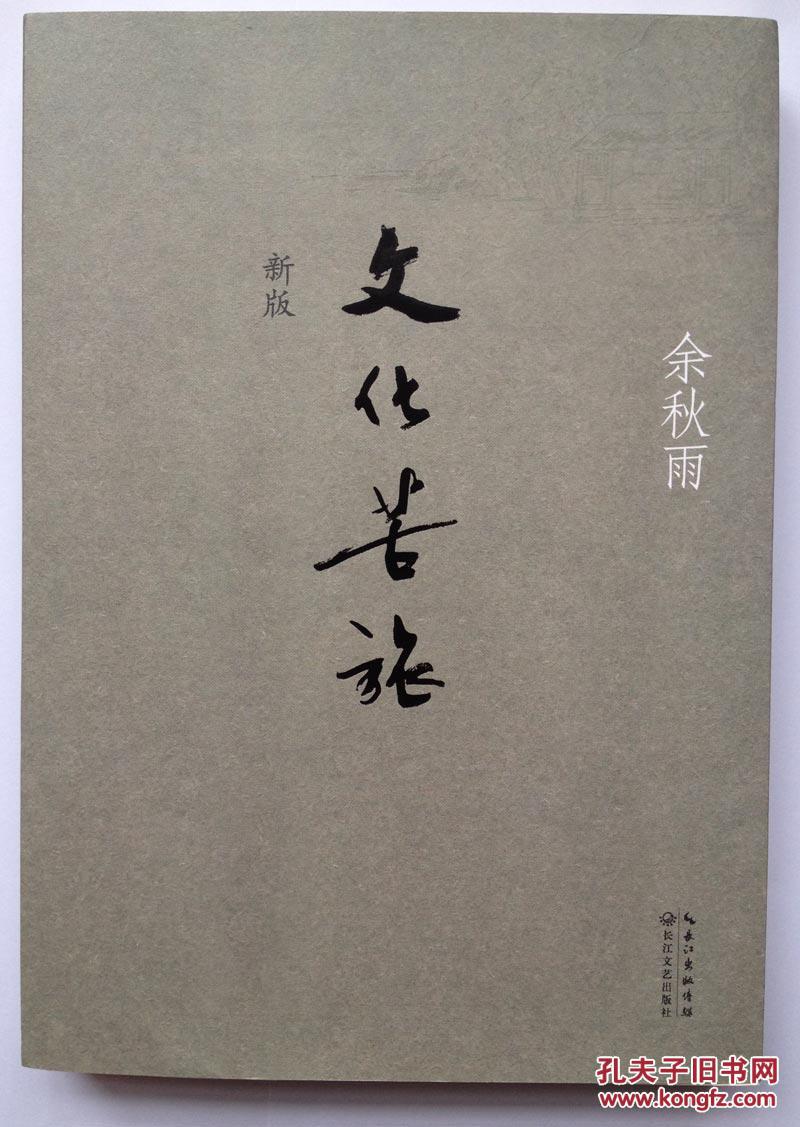 文化苦旅
新版
余秋雨
长江出版传媒
长江文艺出版社
孔夫子旧书网
www.kongfz.com